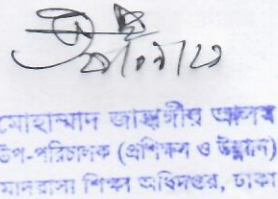 মোহাম্মাদ জাহাঙ্গীর আলম
উপ-পরিচালক (প্রশিক্ষণ ও উন্নয়ন)
মাদরাসা শিক্ষা অধিদপ্তর, ঢাকা